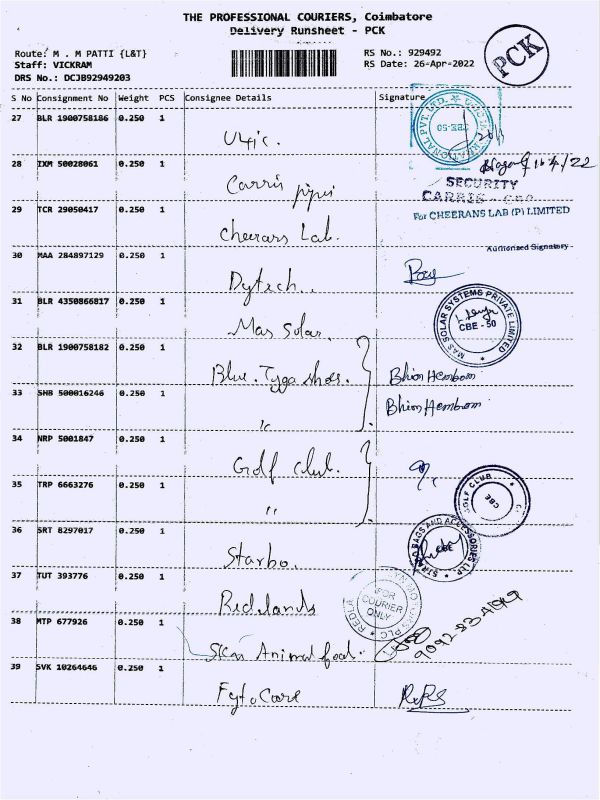 THE PROFESSIONAL COURIERS, Coimbatore
Delivery Runsheet - PCK
PCK
Route: M . M PATTI {L&T}
Staff: VICKRAM
DRS No.: DCJB92949203
RS No.: 929492
RS Date: 26-Apr-2022
S No Consignment No Weight PCS Consignee Details Signature
27 BLR 1900758186 0.250 1
CBE-50
28 IXM 50028061 0.250 1 Carris pipes
SECURITY
CARRIS - CBO
29 TCR 29050417 0.250 1 Cheerans Lab.
For CHEERANS LAB (P) LIMITED
Authorized Signatory
30 MAA 284897129 0.250 1 Dytech..
31 BLR 4350866817 0.250 1 Mas Solar.
MAS SOLAR SYSTEMS PRIVATE LIMITED
CBE - 50
32 BLR 1900758182 0.250 1 Blue. Tyga shoes. Bhim Hembrom
33 SHB 500016246 0.250 1 " Bhim Hembrom
34 NRP 5001847 0.250 1 Golf club.
35 TRP 6663276 0.250 1 "
GOLF CLUB
CBE
36 SRT 8297017 0.250 1 Starbo.
BAGS AND ACCESSORIES LLP
CBE
37 TUT 393776 0.250 1 Redelands
FOR COURIER ONLY
38 MTP 677926 0.250 1 Animal food.
39 SVK 10264646 0.250 1 Fyto Care